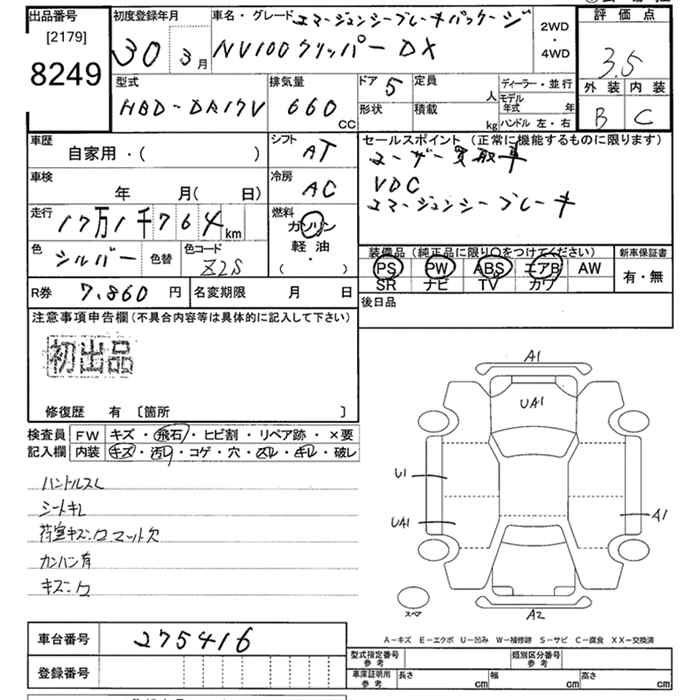 出品番号
[2179]
8249
初度登録年月
30 3月
車名・グレード エマージェンシーブレーキパッケージ
NV100クリッパー DX
2WD
・
4WD
評価点
3.5
外装 内装
B C
型式
HBD-DR17V
排気量
660 CC
ドア 5
形状
定員 人
積載 kg
ディーラー・並行
モデル年式 年
ハンドル 左・右
車歴
自家用・( )
シフト
AT
車検
年 月( 日)
冷房
AC
走行
17万1千764km
燃料
ガソリン
軽油
・
( )
色
シルバー
色替
色コード
Z2S
R券 7,860円
名変期限 月 日
セールスポイント(正常に機能するものに限ります)
ユーザー買取車
VDC
エマージェンシーブレーキ
装備品(純正品に限り○をつけてください)
PS PW ABS エアB AW
SR ナビ TV カワ
新車保証書
有・無
後日品
注意事項申告欄(不具合内容等は具体的に記入して下さい)
初出品
修復歴 有 [箇所 ]
検査員
記入欄
FW キズ・飛石・ヒビ割・リペア跡・×要
内装 キズ・汚レ・コゲ・穴・スレ・キレ・破レ
ハンドルスレ
シートキレ
荷室キズ、ロマット欠
カンバン有
A1
UA1
U1
UA1
A1
A2
スペア
A-キズ E-エクボ U-凹み W-補修跡 S-サビ C-腐食 XX-交換済
車台番号 275416
登録番号
型式指定番号
参考
類別区分番号
参考
車庫証明用
参考
長さ cm 幅 cm 高さ cm